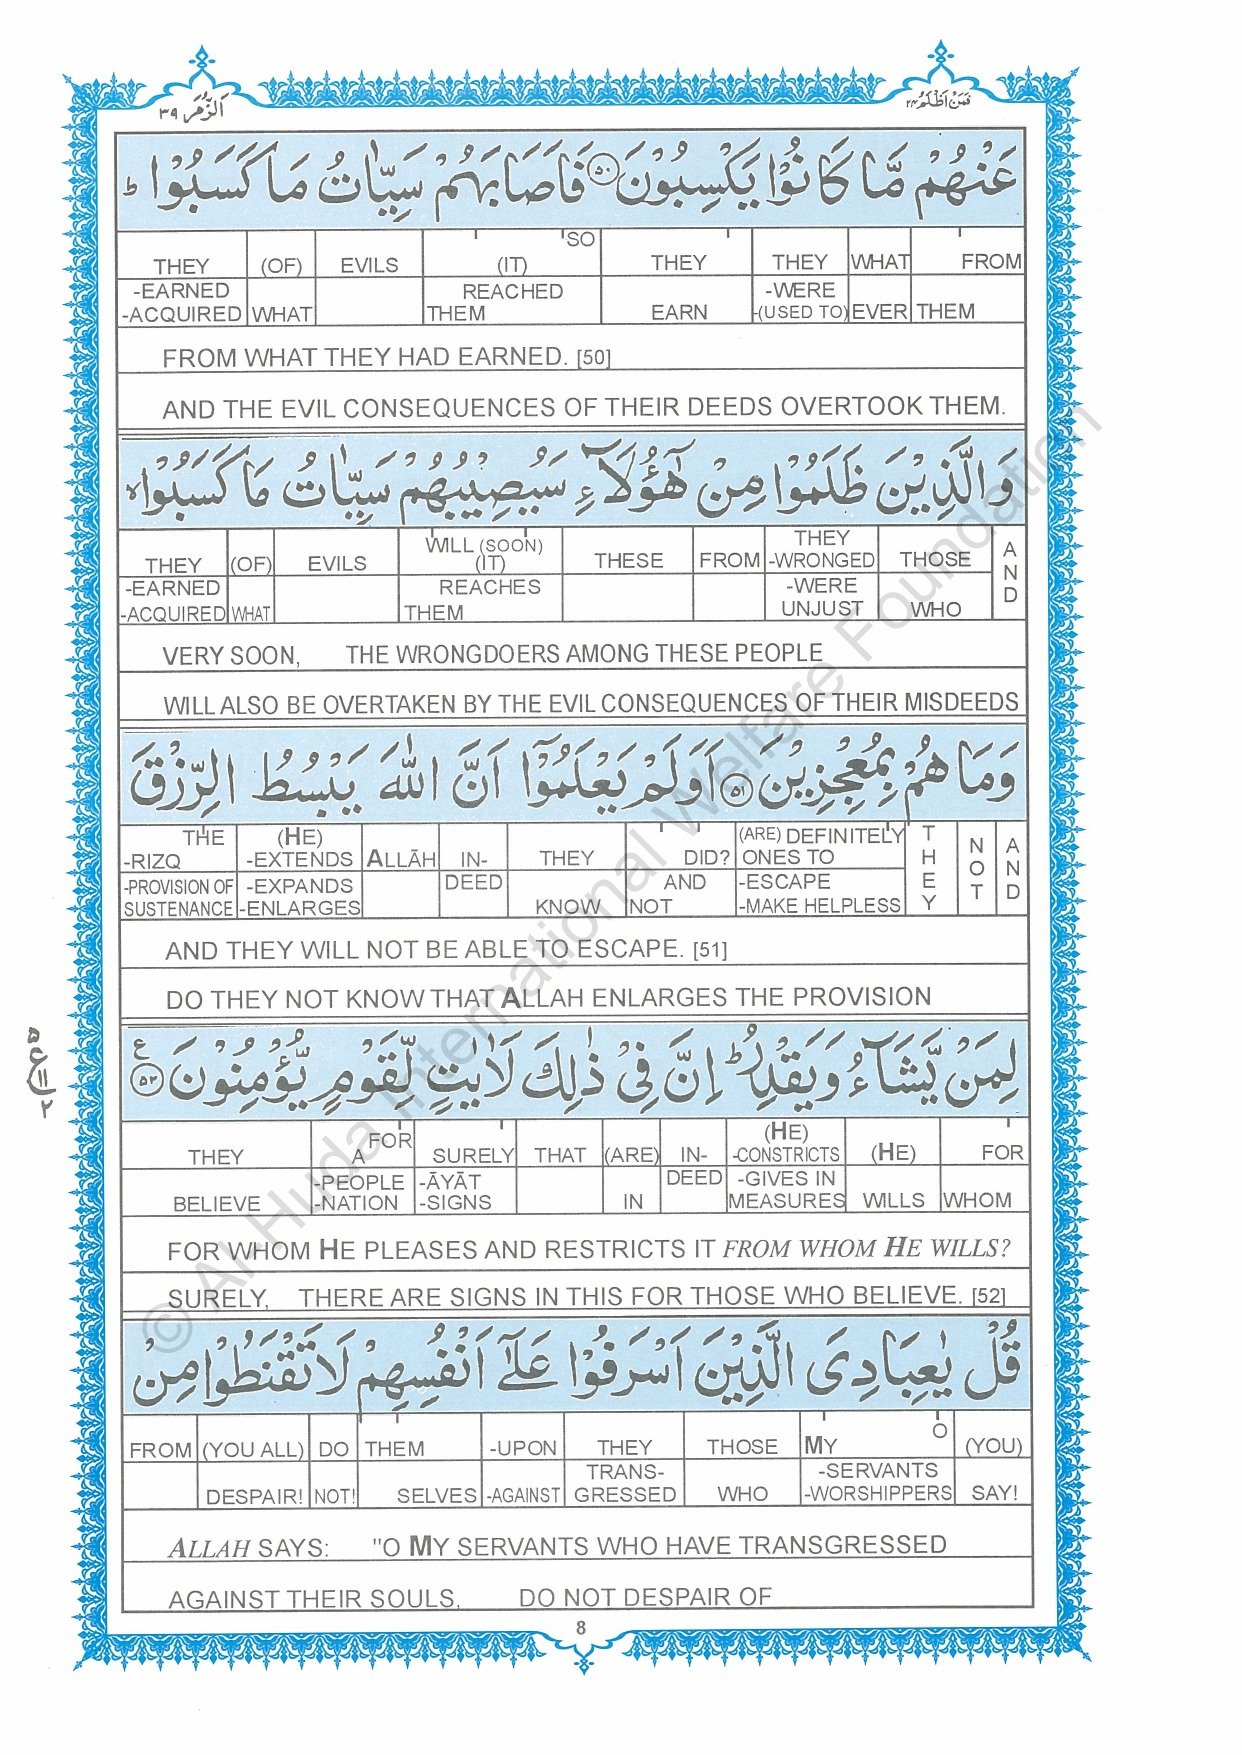 اَلزُّمَر ٣٩
فَمَنْ اَظْلَمُ ٢٤
عَنْهُمْ مَّا كَانُوْا يَكْسِبُوْنَ ٥٠ فَاَصَابَهُمْ سَيِّاٰتُ مَا كَسَبُوْا ط
THEY (OF) EVILS SO (IT) THEY THEY WHAT FROM
-EARNED -ACQUIRED WHAT REACHED THEM EARN -WERE -(USED TO) EVER THEM
FROM WHAT THEY HAD EARNED. [50]
AND THE EVIL CONSEQUENCES OF THEIR DEEDS OVERTOOK THEM.
وَالَّذِيْنَ ظَلَمُوْا مِنْ هٰٓؤُلَآءِ سَيُصِيْبُهُمْ سَيِّاٰتُ مَا كَسَبُوْا
THEY (OF) EVILS WILL (SOON) (IT) THESE FROM THEY -WRONGED THOSE AND
-EARNED -ACQUIRED WHAT REACHES THEM -WERE UNJUST WHO
VERY SOON, THE WRONGDOERS AMONG THESE PEOPLE
WILL ALSO BE OVERTAKEN BY THE EVIL CONSEQUENCES OF THEIR MISDEEDS
وَمَا هُمْ بِمُعْجِزِيْنَ ٥١ اَوَلَمْ يَعْلَمُوْٓا اَنَّ اللّٰهَ يَبْسُطُ الرِّزْقَ
THE -RIZQ (HE) -EXTENDS ALLĀH IN- THEY DID? (ARE) DEFINITELY ONES TO THEY NOT AND
-PROVISION OF SUSTENANCE -EXPANDS -ENLARGES DEED KNOW AND NOT -ESCAPE -MAKE HELPLESS
AND THEY WILL NOT BE ABLE TO ESCAPE. [51]
DO THEY NOT KNOW THAT ALLAH ENLARGES THE PROVISION
لِمَنْ يَّشَآءُ وَيَقْدِرُ ط اِنَّ فِيْ ذٰلِكَ لَاٰيٰتٍ لِّقَوْمٍ يُّؤْمِنُوْنَ ٥٢ ع
٥
ع
١١
٢
THEY FOR A SURELY THAT (ARE) IN- (HE) -CONSTRICTS (HE) FOR
BELIEVE -PEOPLE -NATION -ĀYĀT -SIGNS IN DEED -GIVES IN MEASURES WILLS WHOM
FOR WHOM HE PLEASES AND RESTRICTS IT FROM WHOM HE WILLS?
SURELY, THERE ARE SIGNS IN THIS FOR THOSE WHO BELIEVE. [52]
قُلْ يٰعِبَادِىَ الَّذِيْنَ اَسْرَفُوْا عَلٰٓى اَنْفُسِهِمْ لَا تَقْنَطُوْا مِنْ
FROM (YOU ALL) DO THEM -UPON THEY THOSE MY O (YOU)
DESPAIR! NOT! SELVES -AGAINST TRANS- GRESSED WHO -SERVANTS -WORSHIPPERS SAY!
ALLAH SAYS: "O MY SERVANTS WHO HAVE TRANSGRESSED
AGAINST THEIR SOULS, DO NOT DESPAIR OF
8
© Al-Huda International Welfare Foundation